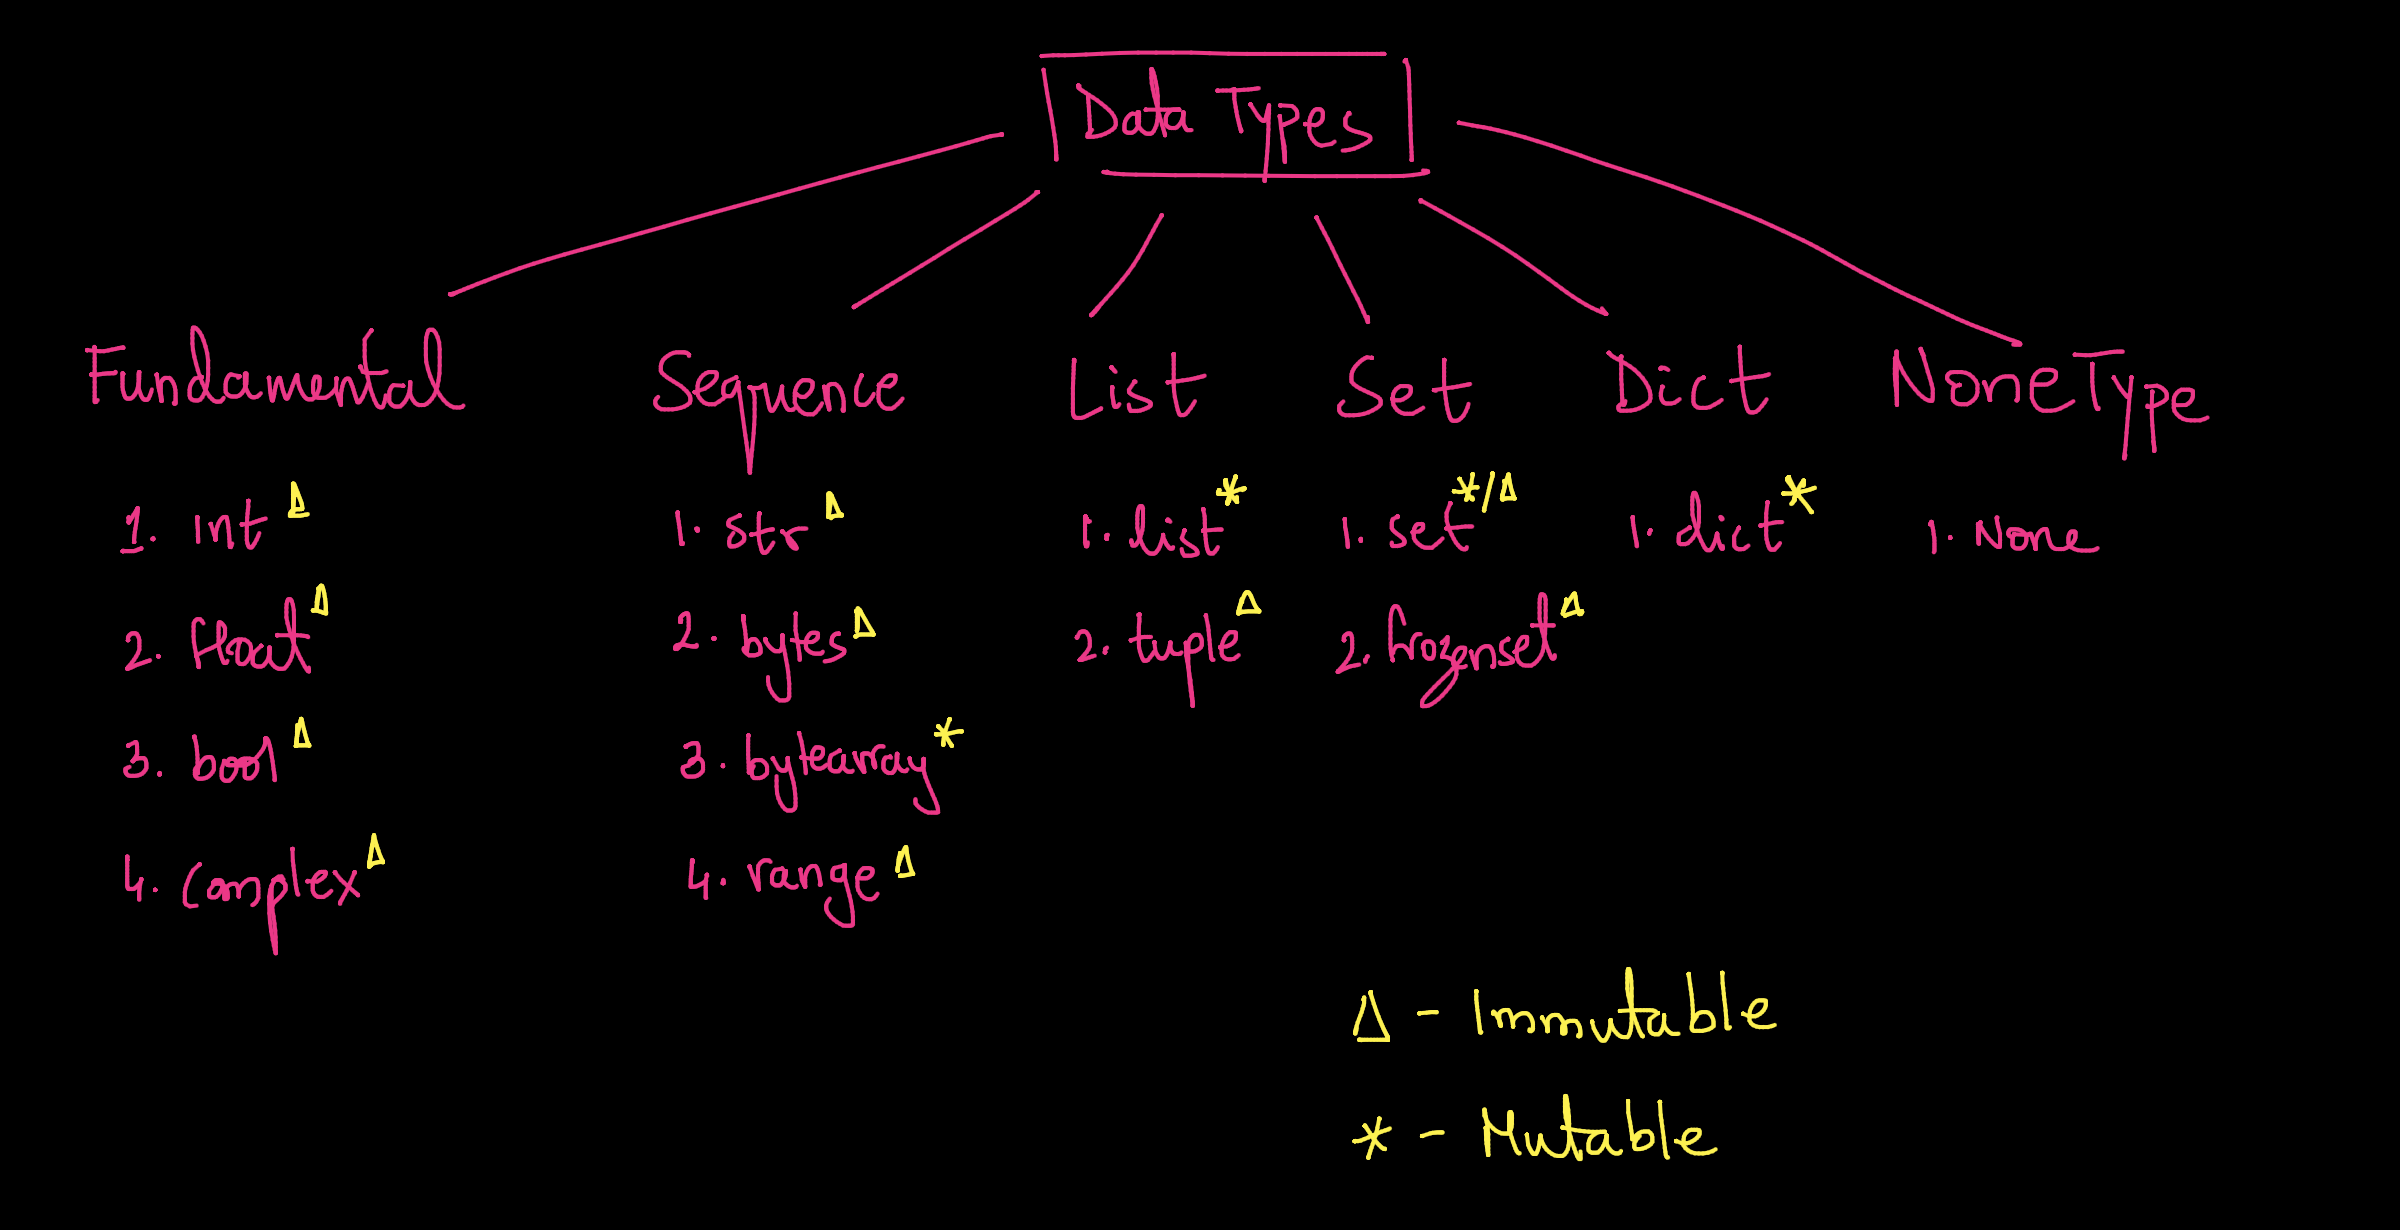 Data Types
Fundamental
1. int Δ
2. float Δ
3. bool Δ
4. Complex Δ
Sequence
1. str Δ
2. bytes Δ
3. bytearray *
4. range Δ
List
1. list *
2. tuple Δ
Set
1. set */Δ
2. frozenset Δ
Dict
1. dict *
NoneType
1. None
Δ - Immutable
* - Mutable